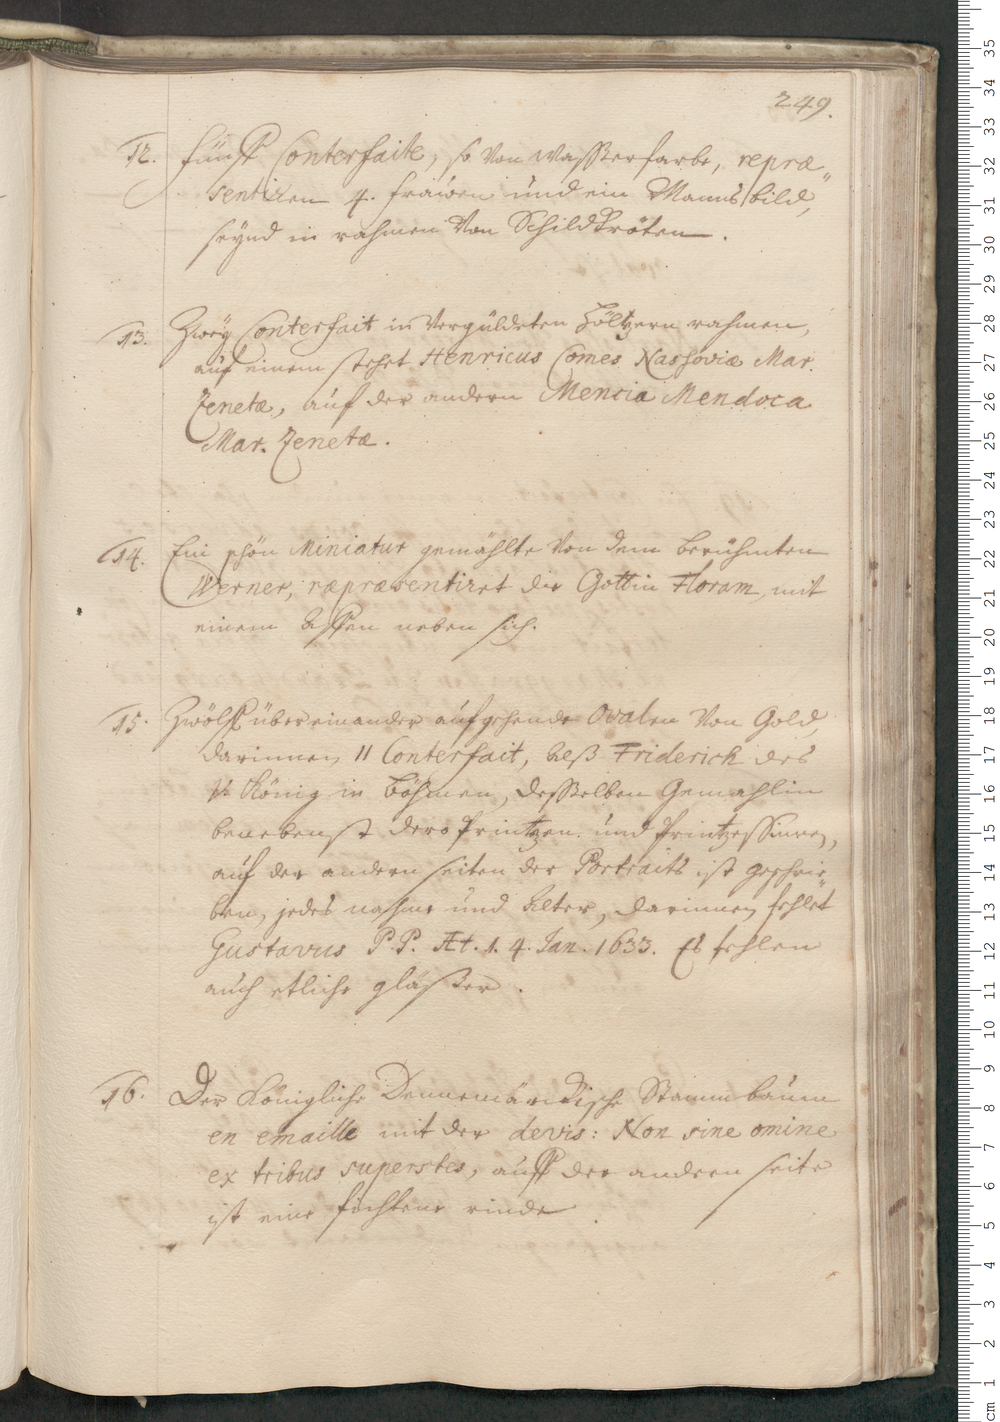 249.
12. fünff Conterfaite, so Von wasserfarbe, repræ"
sentiren 4. frawen und ein Mannsbild,
seynd in rahmen Von Schildkröten.
13. Zweÿ Conterfait in Vergüldeten höltzern rahmen,
auf einem stehet Henricus Comes Nassoviæ Mar.
Zenetæ, auf der andern Mencia Mendoca
Mar. Zenetæ.
14. Ein schön Miniatur gemählte Von dem berühmten
Werner, ræpræsentiret die Göttin Floram, mit
einem Affen neben sich.
15. Zwölff übereinander aufgehende Ovalen Von Gold,
darinnen 11 Conterfait, alß Friderich des
V. König in Böhmen, desselben Gemahlin
benebenst dero Printzen und Printzessinnen,
auf der andern seiten der Portraits ist geschrie"
ben, jedes nahme und alter, darinnen fehlet
Gustavus P.P. Æt. 1. 4. Jan. 1633. Es fehlen
auch etliche gläßer.
16. Der Königliche Dennemärckische Stammbaum
en emaille mit der devis: Non sine omine
ex tribus superstes, auff der andern seite
ist eine fichtene rinde